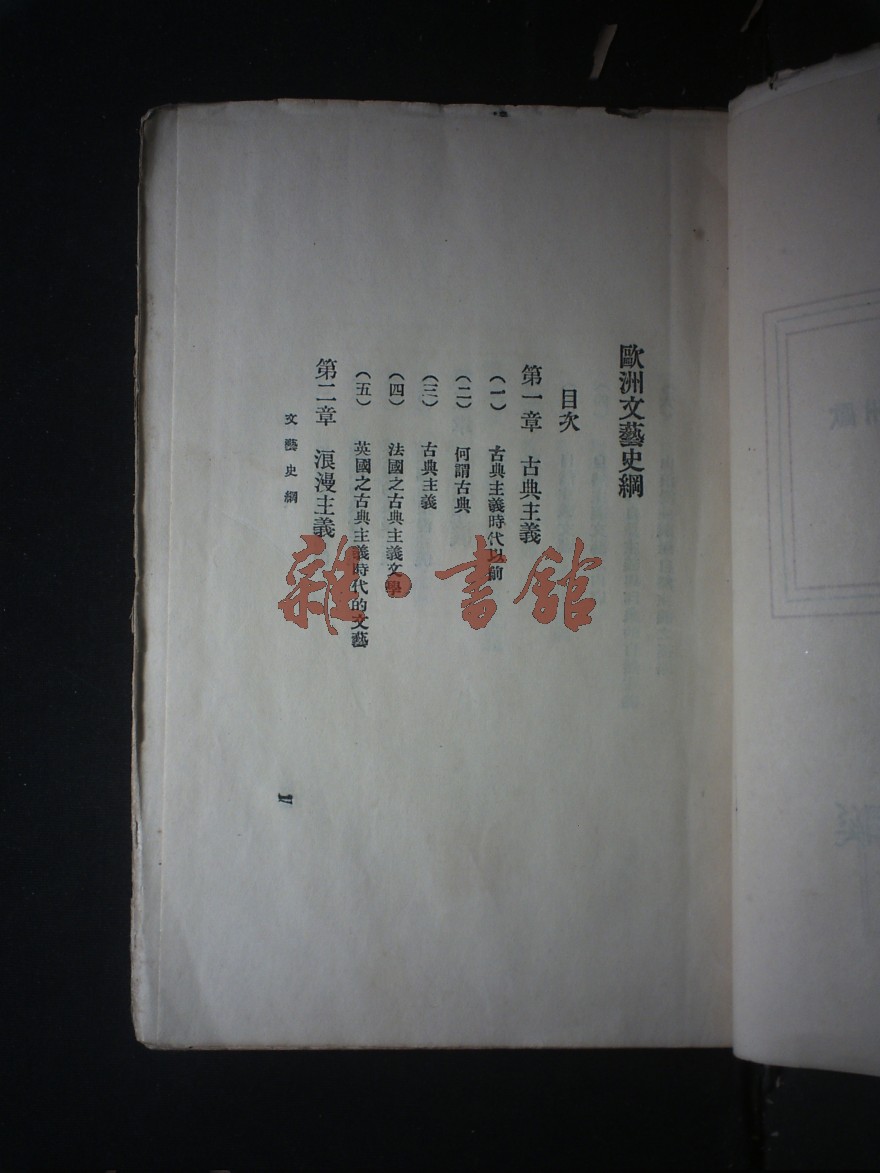 歐洲文藝史綱
目次
第一章 古典主義
(一) 古典主義時代以前
(二) 何謂古典
(三) 古典主義
(四) 法國之古典主義文學
(五) 英國之古典主義時代的文藝
第二章 浪漫主義
文藝史綱
1
雜·書館